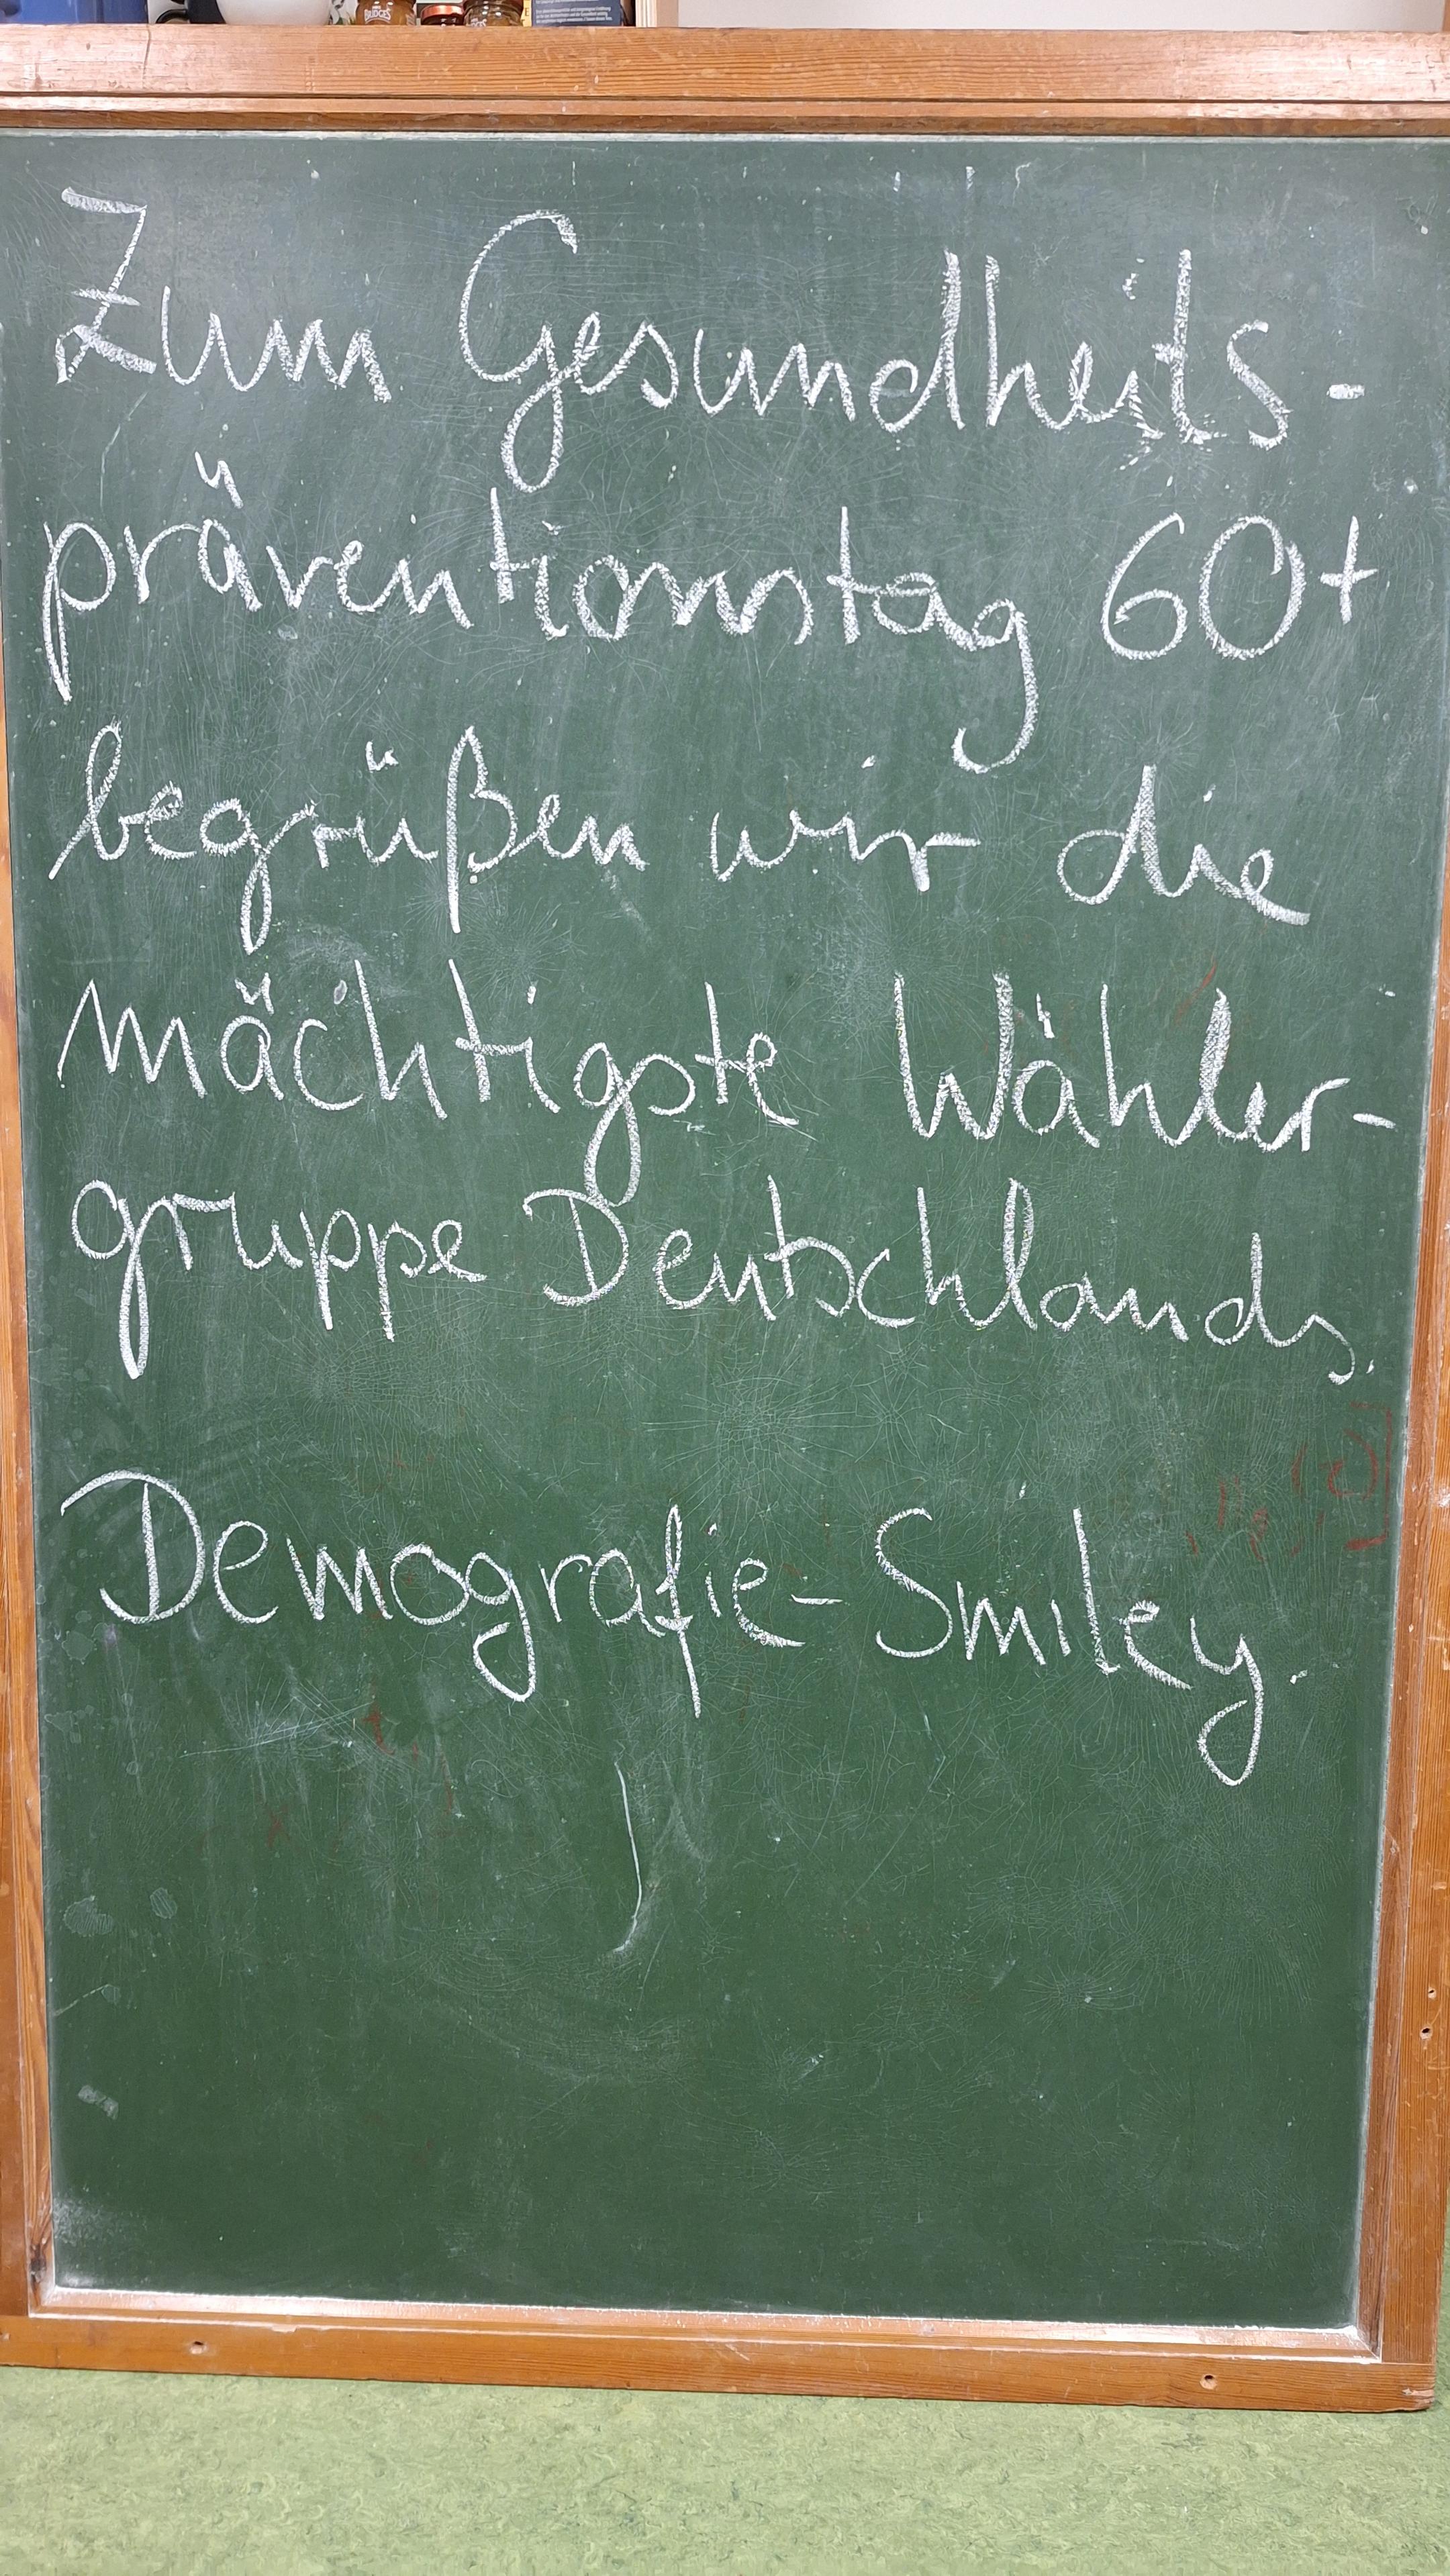 BRIDGES
Zum Gesundheits-
präventionstag 60+
begrüßen wir die
mächtigste Wähler-
gruppe Deutschlands.
Demografie-Smiley.